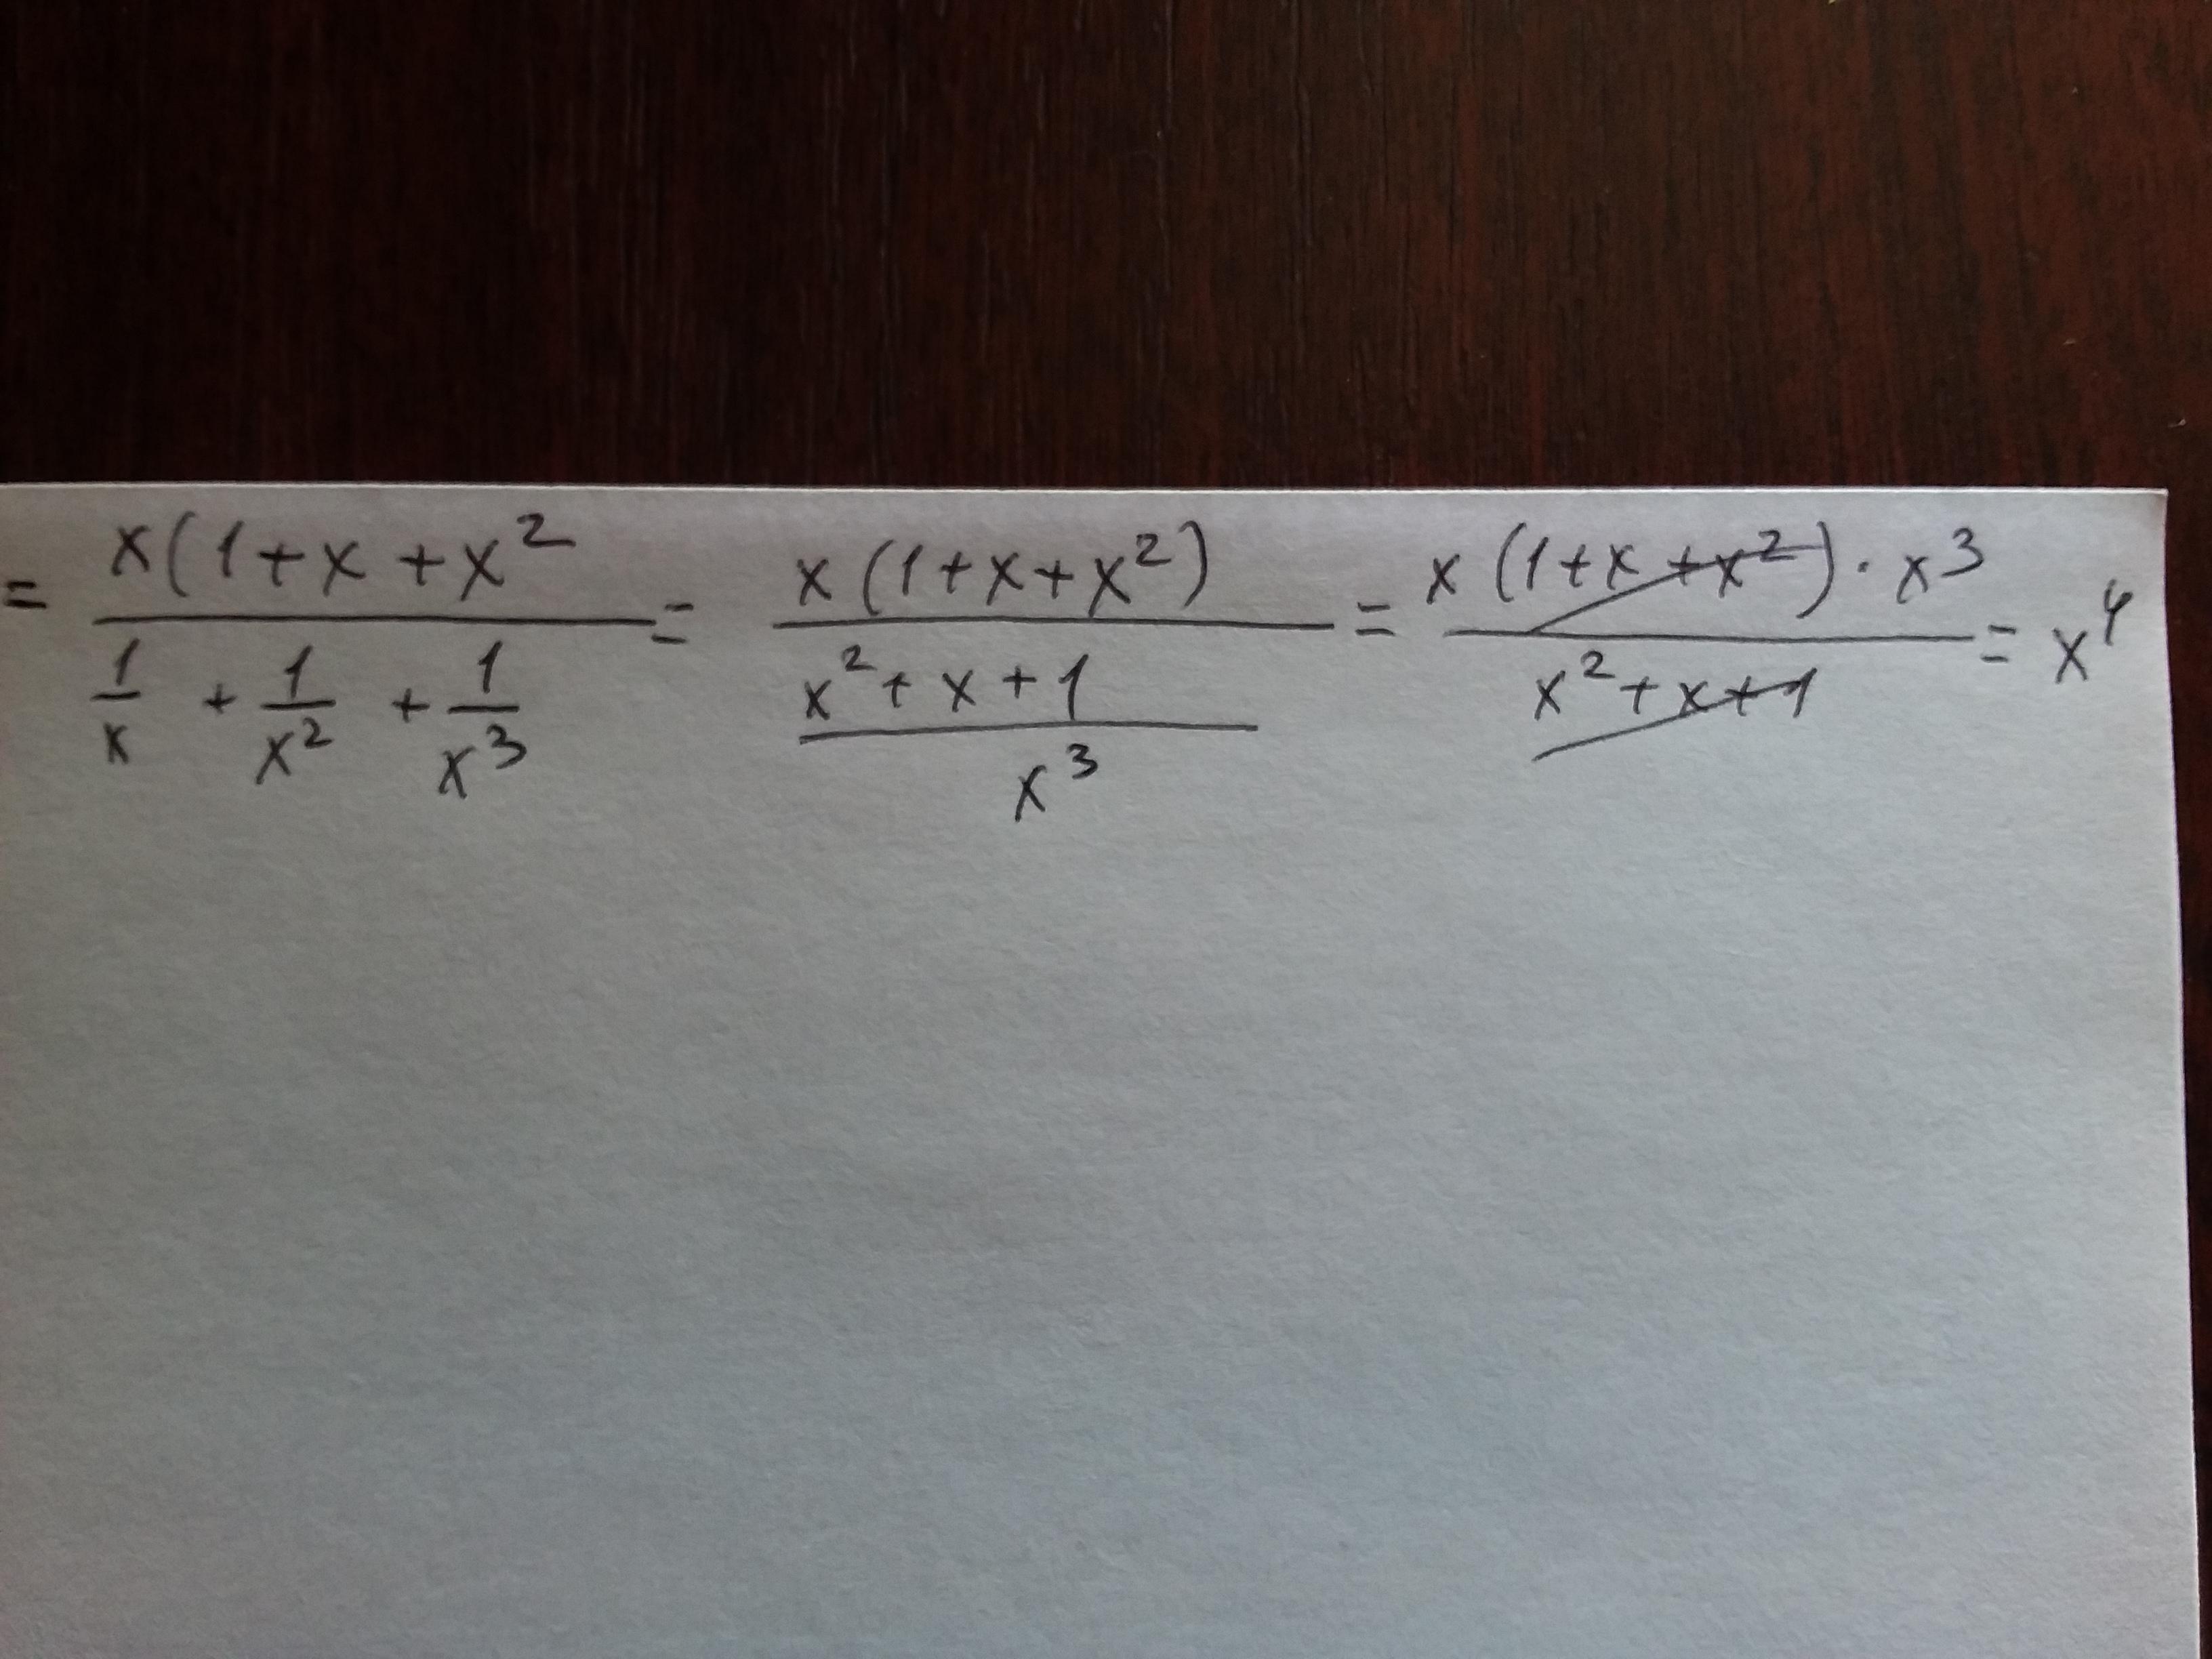 = x(1+x+x² / (1/x + 1/x² + 1/x³) = x(1+x+x²) / ((x²+x+1)/x³) = x(1+x+x²)·x³ / (x²+x+1) = x⁴